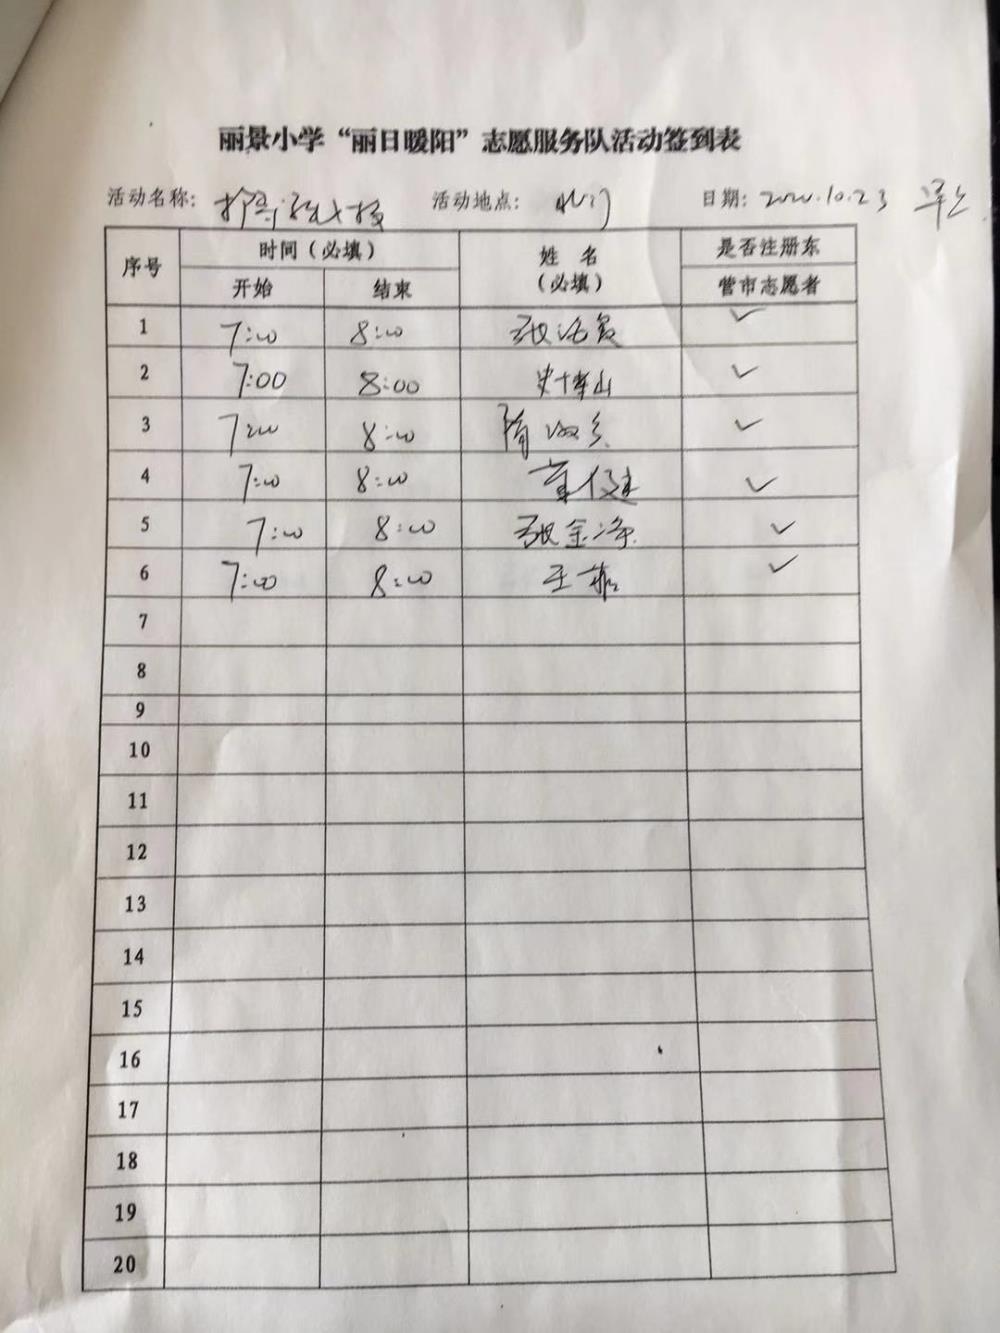 丽景小学“丽日暖阳”志愿服务队活动签到表
活动名称： 活动地点：北门 日期：2020.10.23 早上
序号 时间（必填） 姓 名（必填） 是否注册东营市志愿者
开始 结束
1 7:00 8:00 ✓
2 7:00 8:00 史博山 ✓
3 7:00 8:00 ✓
4 7:00 8:00 董健 ✓
5 7:00 8:00 张金净 ✓
6 7:00 8:00 ✓
7
8
9
10
11
12
13
14
15
16
17
18
19
20